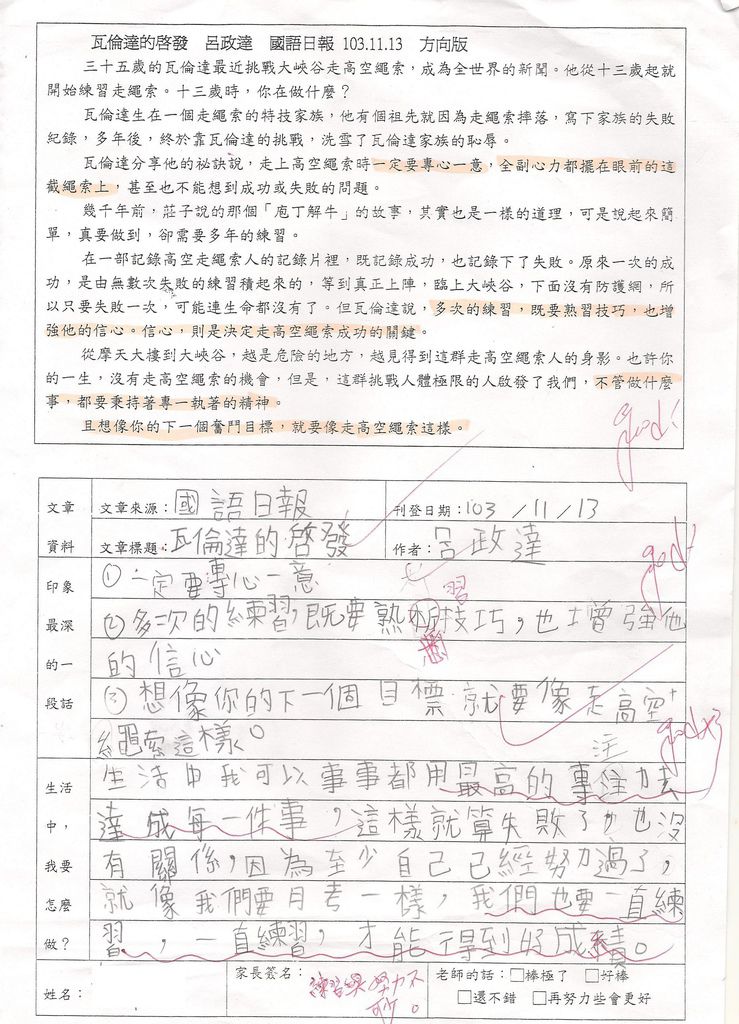 瓦倫達的啓發　呂政達　國語日報 103.11.13　方向版
三十五歲的瓦倫達最近挑戰大峽谷走高空繩索，成為全世界的新聞。他從十三歲起就
開始練習走繩索。十三歲時，你在做什麼？
瓦倫達生在一個走繩索的特技家族，他有個祖先就因為走繩索摔落，寫下家族的失敗
紀錄，多年後，終於靠瓦倫達的挑戰，洗雪了瓦倫達家族的恥辱。
瓦倫達分享他的祕訣說，走上高空繩索時一定要專心一意，全副心力都擺在眼前的這
截繩索上，甚至也不能想到成功或失敗的問題。
幾千年前，莊子說的那個「庖丁解牛」的故事，其實也是一樣的道理，可是說起來簡
單，真要做到，卻需要多年的練習。
在一部記錄高空走繩索人的記錄片裡，既記錄成功，也記錄下了失敗。原來一次的成
功，是由無數次失敗的練習積起來的，等到真正上陣，臨上大峽谷，下面沒有防護網，所
以只要失敗一次，可能連生命都沒有了。但瓦倫達說，多次的練習，既要熟習技巧，也增
強他的信心。信心，則是決定走高空繩索成功的關鍵。
從摩天大樓到大峽谷，越是危險的地方，越見得到這群走高空繩索人的身影。也許你
的一生，沒有走高空繩索的機會，但是，這群挑戰人體極限的人啟發了我們，不管做什麼
事，都要秉持著專一執著的精神。
且想像你的下一個奮鬥目標，就要像走高空繩索這樣。
good!
文章資料
文章來源：國語日報
刊登日期：103/11/13
文章標題：瓦倫達的啓發
作者：呂政達
good!
印象最深的一段話
①一定要專心一意
習
②多次的練習，既要熟技巧，也增強他
的信心
③想像你的下一個目標就要像走高空
繩索這樣。
good x3
注
生活中，我要怎麼做？
生活中我可以事事都用最高的專注力去
達成每一件事，這樣就算失敗了，也沒
有關係，因為至少自己已經努力過了，
就像我們要月考一樣，我們也要一直練
習，一直練習，才能得到好成績。
姓名：
家長簽名：
老師的話：□棒極了　□好棒
□還不錯　□再努力些會更好